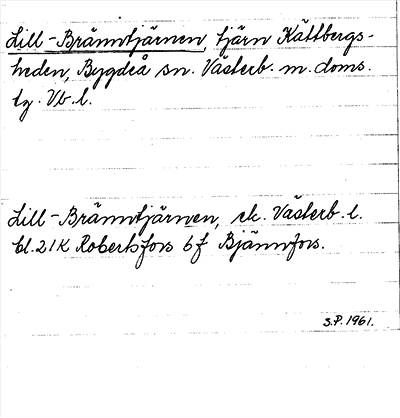 Lill-Bränntjärnen, tjärn Kättbergs-
heden, Bygdeå sn. Västerb. m. doms.
tg. Vb. l.
Lill-Bränntjärnen, ek. Västerb. l.
bl. 21K Robertsfors 6f Bjännfors.
S.P. 1961.